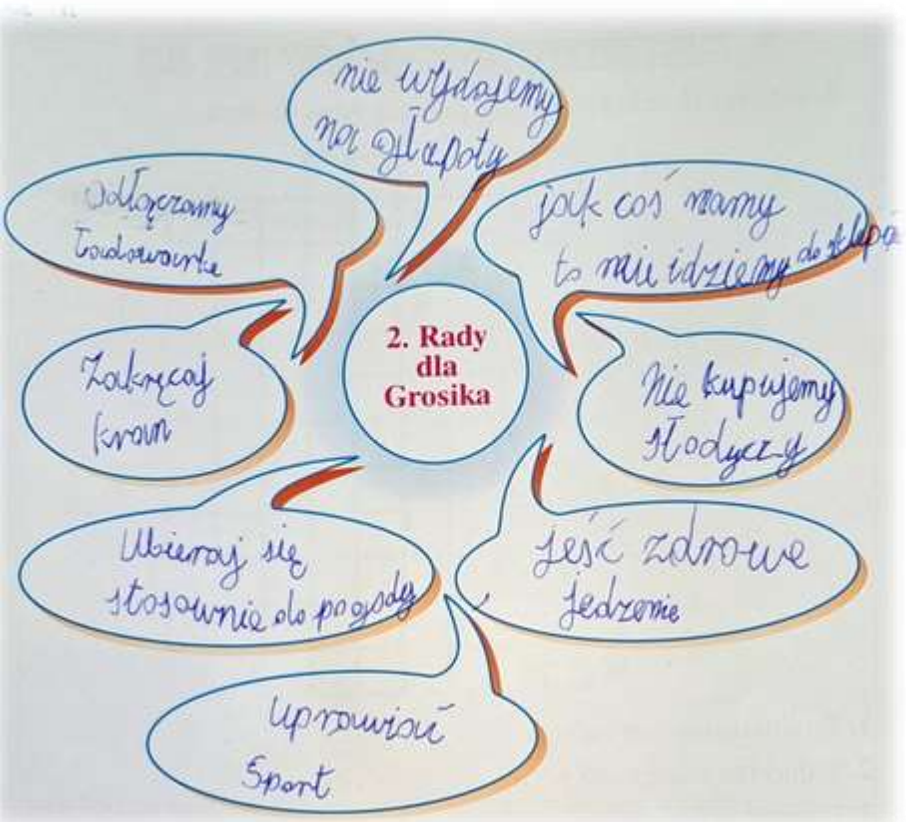 nie wydajemy
na głupoty
Odłączamy
Ładowarke
jak coś mamy
to nie idziemy do sklepu
2. Rady
dla
Grosika
Zakręcaj
kran
Nie kupujemy
słodyczy
Ubieraj się
stosownie do pogody
jeść zdrowe
jedzenie
uprawiać
Sport.